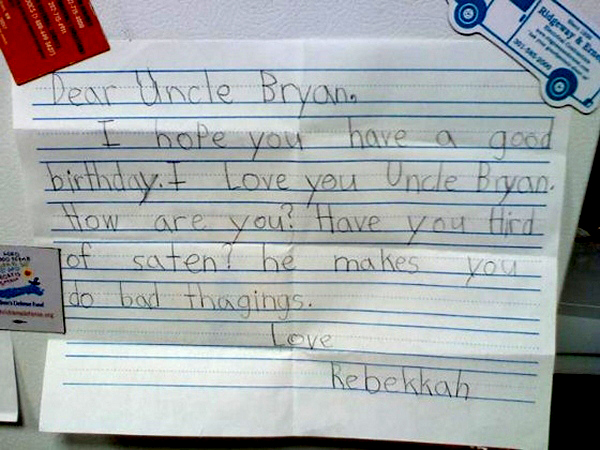 Dear Uncle Bryan,
I hope you have a good
birthday. I Love you Uncle Bryan.
How are you? Have you Hird
of saten? he makes you
do bad thagings.
Love
Rebekkah
Ridgeway &